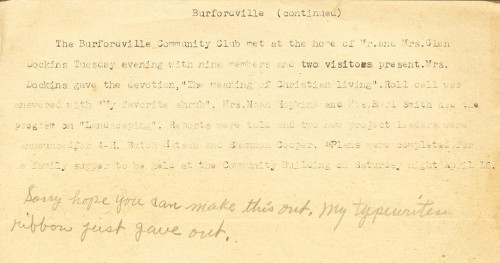 Burfordville (continued)
The Burfordville Community Club met at the home of Mr.and Mrs.Glen
Dockins Tuesday evening with nine members and two visitors present.Mrs.
Dockins gave the devotion,"The meaning of Christian living".Roll call was
answered with "My favorite shrub". Mrs.Noah Hopkins and Mrs.Earl Smith had the
program on "Landscaping". Reports were told and two new project leaders were
announced for 4-H. and Cooper. Plans were completed for
a family supper to be held at the Community Building on Saturday night April
Sorry hope you can make this out. My typewriter
ribbon just gave out.